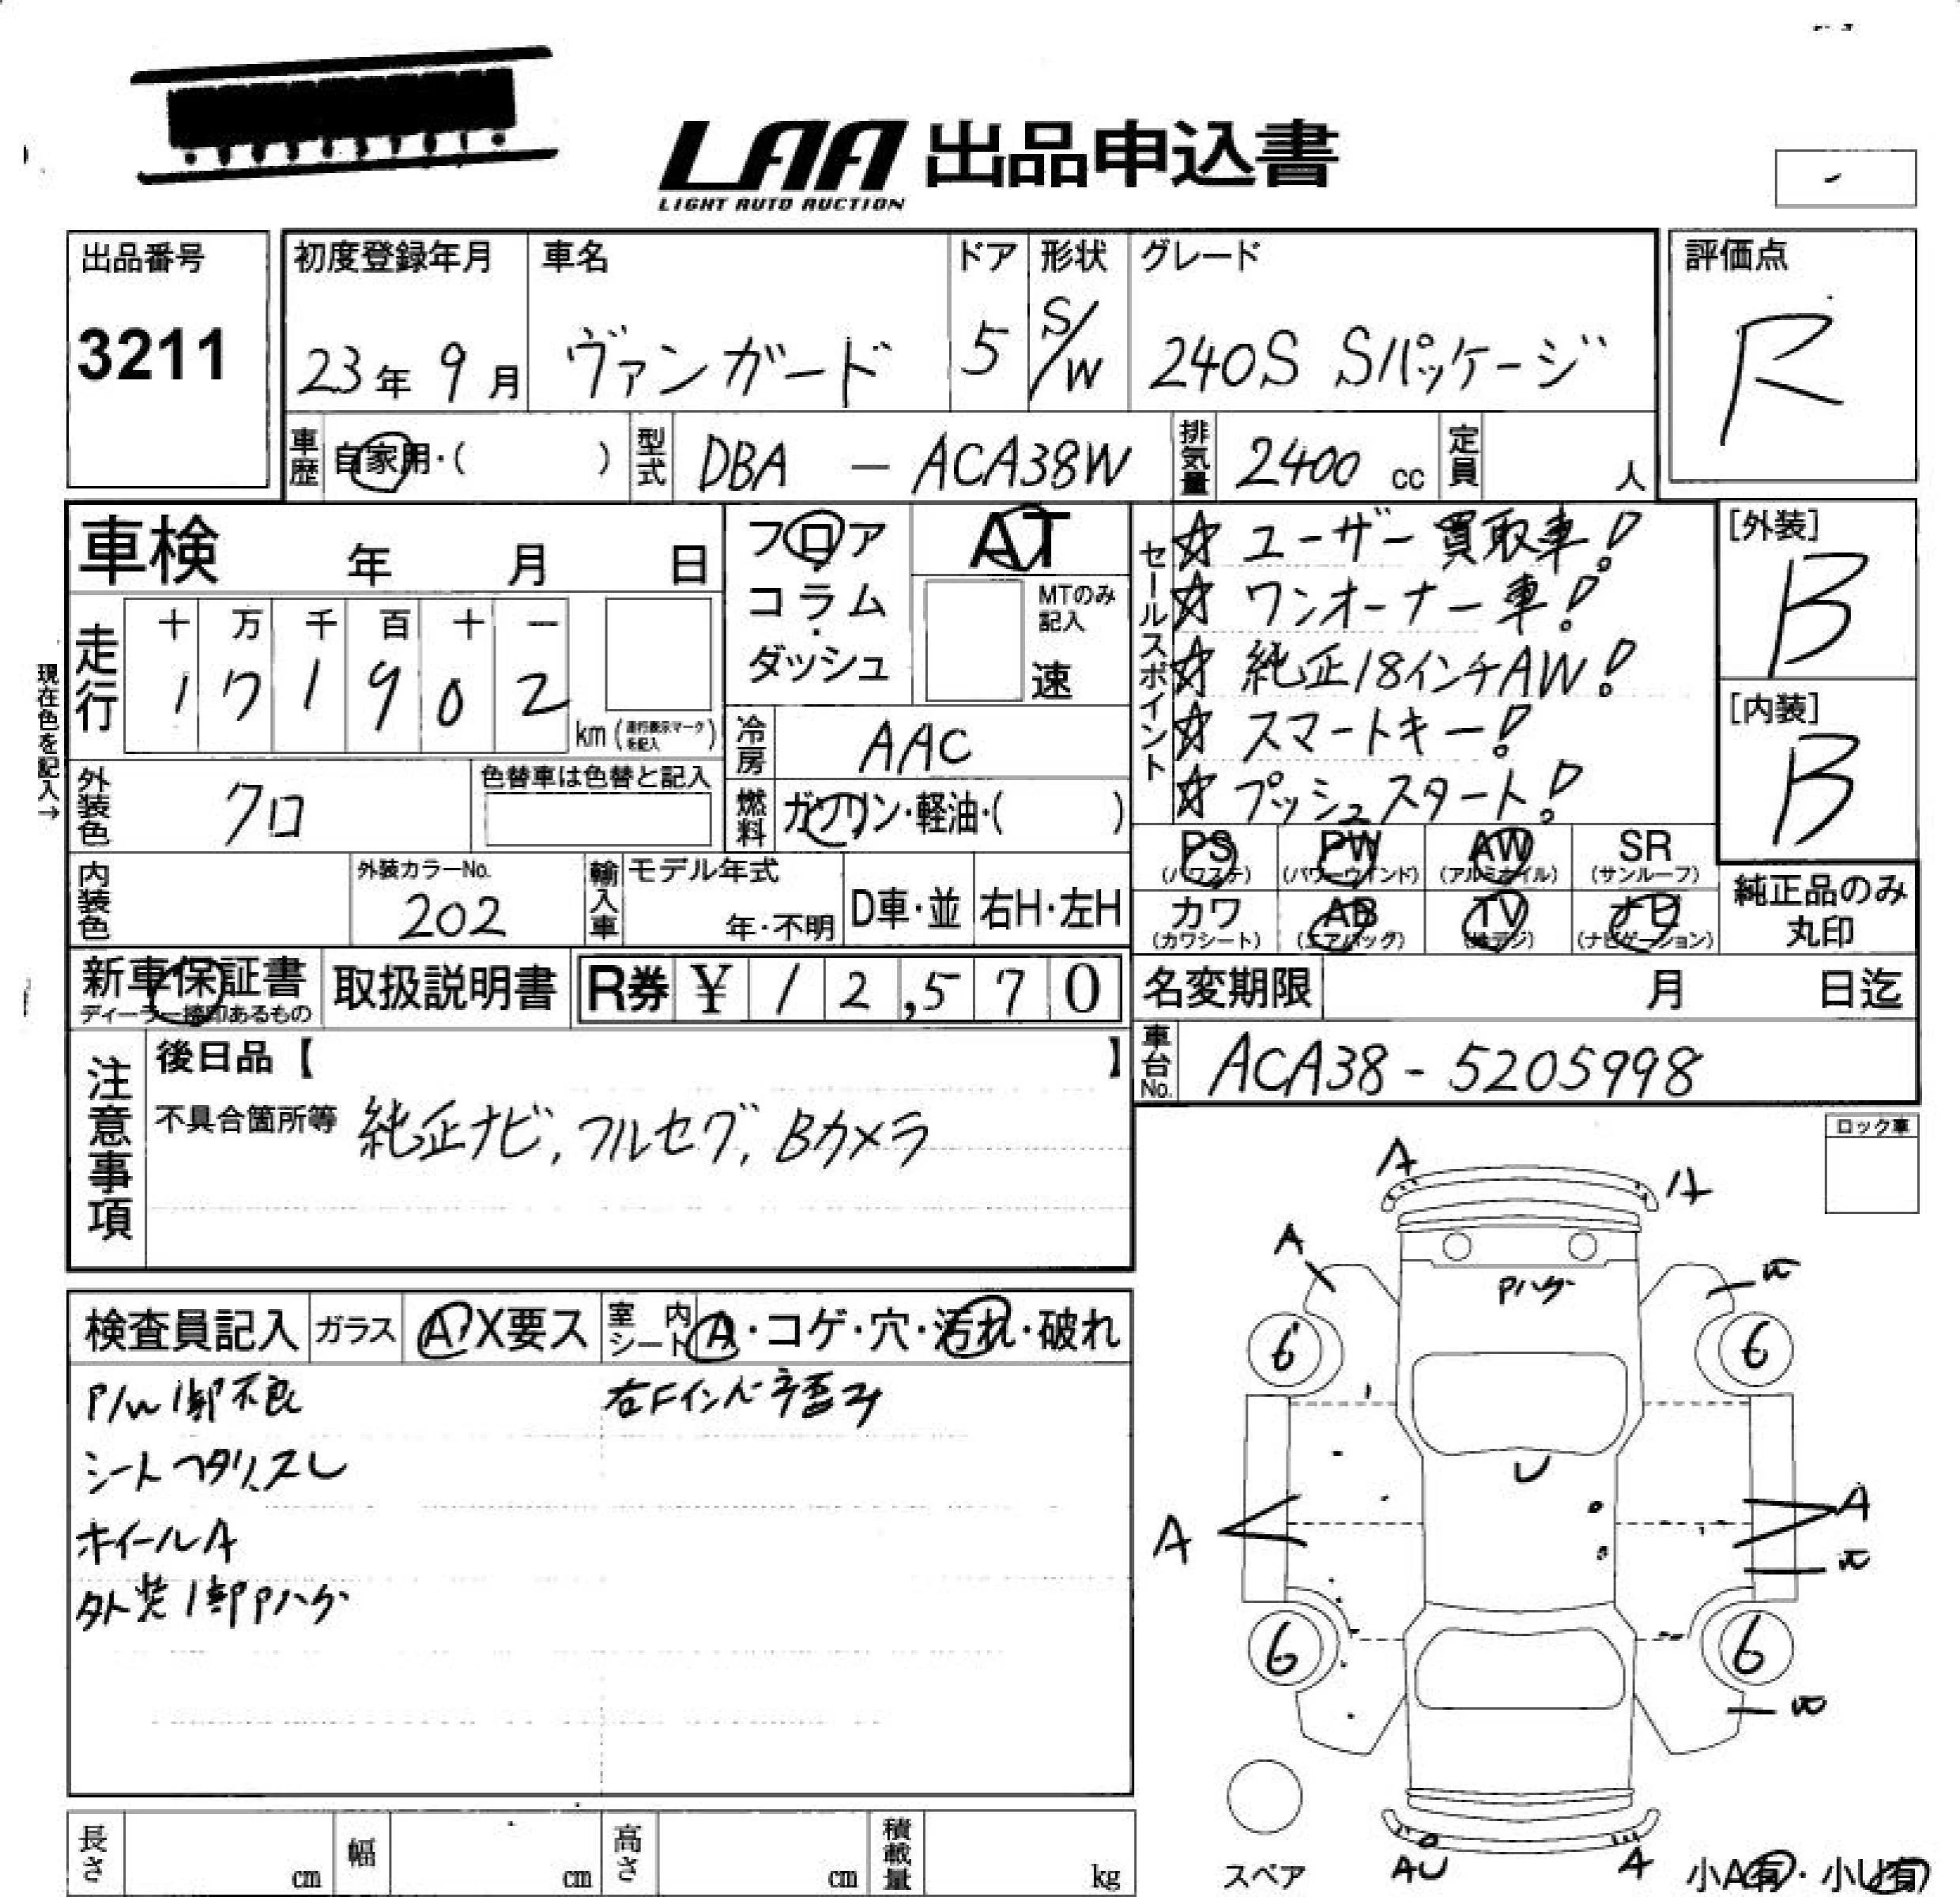 LAA 出品申込書
LIGHT AUTO AUCTION
出品番号
3211
初度登録年月
23年 9月
車名
ヴァンガード
ドア
5
形状
S/W
グレード
240S Sパッケージ
評価点
R
車歴 自家用・( )
型式 DBA - ACA38W
排気量 2400 cc
定員 人
車検 年 月 日
フロア
コラム
ダッシュ
AT
MTのみ記入
速
セールスポイント
☆ ユーザー買取車!
☆ ワンオーナー車!
☆ 純正18インチAW!
☆ スマートキー!
☆ プッシュスタート!
[外装]
B
[内装]
B
現在色を記入→
走行
十 万 千 百 十 一
1 7 1 9 0 2
km (走行表示マークを記入)
冷房 AAC
外装色 クロ
色替車は色替と記入
燃料 ガソリン・軽油・( )
PS (パワステ)
PW (パワーウインド)
AW (アルミホイル)
SR (サンルーフ)
カワ (カワシート)
AB (エアバッグ)
TV (地デジ)
ナビ (ナビゲーション)
純正品のみ
丸印
内装色
外装カラーNo.
202
輸入車
モデル年式
年・不明
D車・並
右H・左H
新車保証書
ディーラー捺印あるもの
取扱説明書
R券 ¥ 12,570
名変期限 月 日迄
車台No. ACA38-5205998
注意事項
後日品【 】
不具合箇所等 純正ナビ,フルセグ,Bカメラ
ロック車
検査員記入
ガラス A/X要ス
室内シート A・コゲ・穴・汚れ・破れ
P/W 1部不良
右Fインパネ歪み
シート ヘタリ、スレ
ホイールA
外装1部Pハゲ
A
A
A
W
Pハゲ
6
6
U
A
A
W
6
6
W
スペア
AU
A
小A有・小U有
長さ cm
幅 cm
高さ cm
積載量 kg